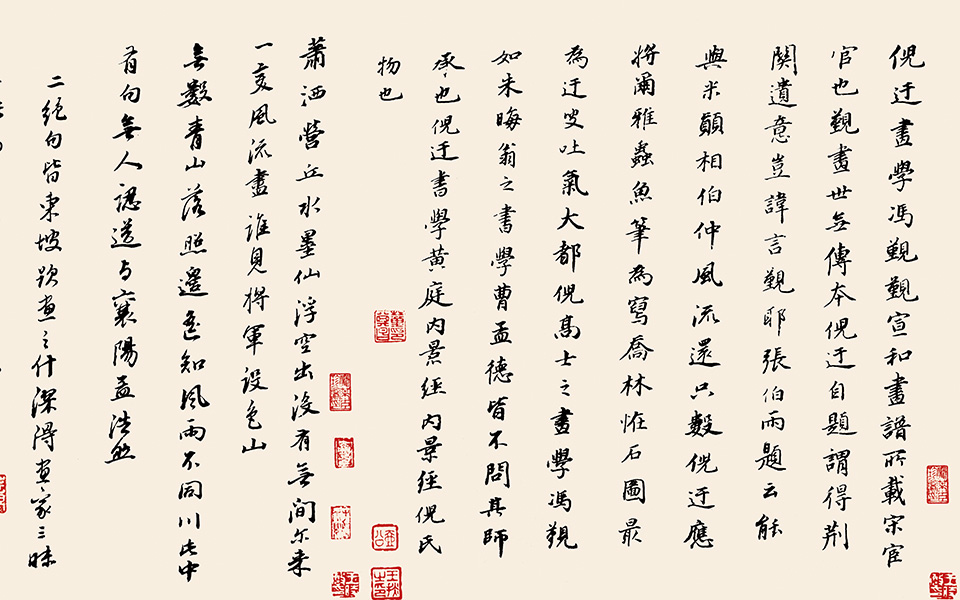 倪迂畫學馮覲覲宣和畫譜所載宋宦
官也覲畫世無傳本倪迂自題謂得荆
關遺意豈諱言覲耶張伯雨題云能
與米顛相伯仲風流還只數倪迂應
將爾雅蟲魚筆為寫喬林恠石圖最
為迂叟吐氣大都倪高士之畫學馮覲
如朱晦翁之書學曹孟德皆不問其師
承也倪迂書學黃庭内景經内景經倪氏
物也
蕭洒營丘水墨仙浮空出沒有無間尔来
一変風流盡誰見將軍设色山
無數青山落照邊遙知風雨不同川此中
有句無人認送与襄陽孟浩然
二絶句皆東坡題画之什深得画家三昧